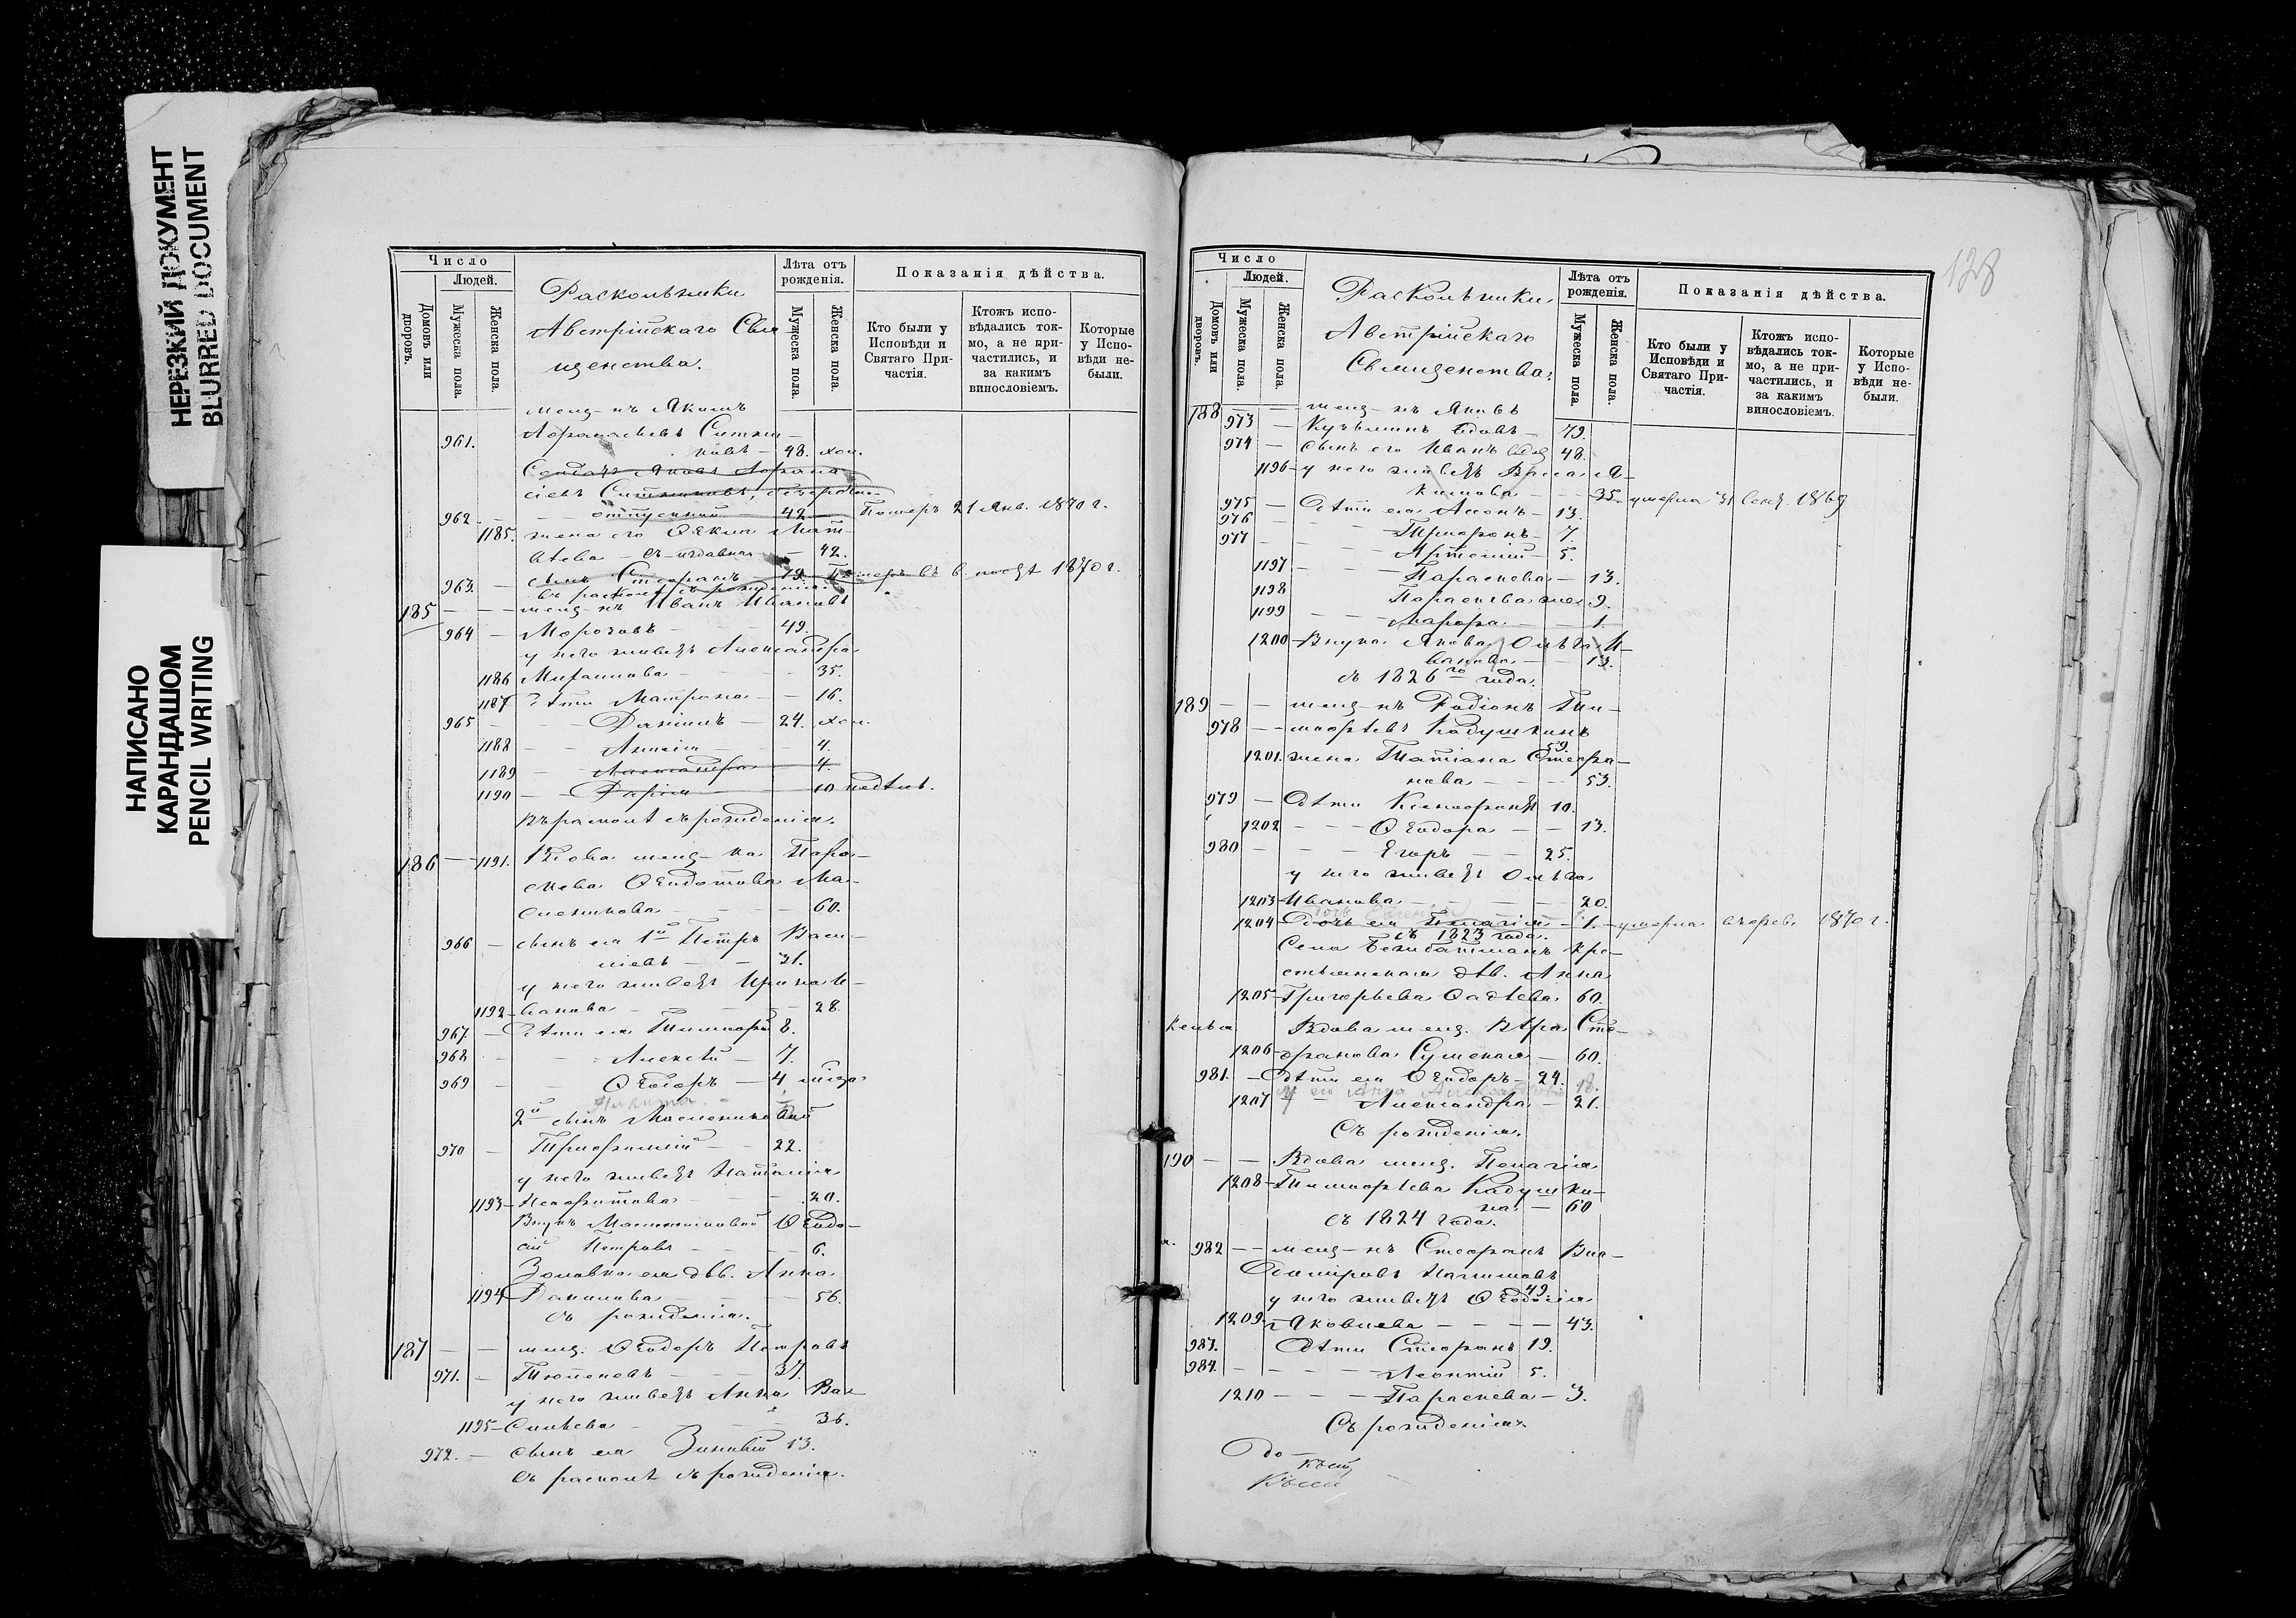 НЕРЕЗКИЙ ДОКУМЕНТ
BLURRED DOCUMENT
НАПИСАНО
КАРАНДАШОМ
PENCIL WRITING
Число
Людей.
Домовъ или дворовъ.
Мужеска пола.
Женска пола.
Раскольники
Австрійскаго Свя
щенства.
Лѣта отъ рожденія.
Мужеска пола.
Женска пола.
Показанія дѣйства.
Кто были у Исповѣди и Святаго Причастія.
Ктожъ исповѣдались токмо, а не причастились, и за какимъ винословіемъ.
Которые у Исповѣди небыли.
мещ-нъ Якимъ
961. Афанасьевъ Ситни-
ковъ – 48. хол.
962 42 Померъ 21 Янв. 1870 г.
1185. жена его Ѳекла Мат-
вѣева – съ издавна – 42.
963. сынъ Стефанъ 19. Померъ въ в. постѣ 1870 г.
въ расколѣ съ рожденія
185 – – мещ-нъ Иванъ Ивановъ
964 – Морозовъ – 49.
у него живетъ Александра
1186 Михайлова – 35.
1187 дѣти Матрона – 16.
965 – Даніилъ – 24. хол.
1188 – 4.
1189 – Александра 4.
1190 – Дарія 10 недѣль.
Въ расколѣ съ рожденія.
186 – 1191. Вдова мещ-ка Пара-
скева Ѳедотова Ма-
сленикова – 60.
966 – сынъ ея 1й Петръ Васи-
ліевъ – 31.
у него живетъ Ирина И-
1192 – ванова – 28
967. – Дѣти ея Тимофей 8.
968 – Алексѣй – 7.
969 – Ѳеодоръ – 4
Никита.
2й сынъ Маслениковой
970 – Трифиллій – 22.
у него живетъ Наталія
1193 – Неофитова – 20.
Внукъ Маслениковой Ѳеодо-
сій Петровъ – 6.
Золовка ея дѣв. Анна
1194 – Данилова – 56.
съ рожденія.
187 – – мещ. Ѳеодоръ Петровъ
971. – Тюленевъ – 37.
у него живетъ Анна Ва-
1195 – сильева – 36.
972. – сынъ ея Зиновій 13.
въ расколѣ съ рожденія.
128
Число
Людей.
Домовъ или дворовъ.
Мужеска пола.
Женска пола.
Раскольники
Австрійскаго
Священства.
Лѣта отъ рожденія.
Мужеска пола.
Женска пола.
Показанія дѣйства.
Кто были у Исповѣди и Святаго Причастія.
Ктожъ исповѣдались токмо, а не причастились, и за какимъ винословіемъ.
Которые у Исповѣди небыли.
188 – мещ-нъ Яковъ
973 – Кузьминъ вдовъ – 79.
974 – сынъ его Иванъ вдов 48.
1196 – у него живетъ Васса А-
кимова – 35. умерла 31 1869
975 – Дѣти ея – 13.
976 – Трифонъ – 7.
977 – Артемій – 5.
1197 – Параскева – 13.
1198 Параскева же 9.
1199 – Марфа – 1.
1200 – Внука Якова Ольга И-
ванова – 13.
съ 1826го года.
189 – – мещ-нъ Родіонъ Тим-
978 – – мофѣевъ Кадушкинъ
59.
1201. жена Татіана Стефа-
нова – 53.
979 – Дѣти Ксенофонтъ 10.
1202 – – Ѳеодора – 13.
980 – – Егоръ – 25.
у него живетъ Ольга
1203 – Иванова – 20.
1204 – Дочь ея – 1. – умерла 1870 г.
съ 1823 года.
Села крес-
тьянская дѣв. Анна
1205 – Григорьева Фадѣева 60.
Келья Вдова мещ. Вѣра Сте-
1206 – фанова Сумская – 60.
981. – Дѣти ея Ѳеодоръ – 24. 18.
1207 – Александра – 21.
Съ рожденія.
190 – – Вдова мещ. Пелагія
1208 – Тимофѣева Кадушки-
на – 60
съ 1824 года.
982 – – мещ-нъ Стефанъ Вла-
диміровъ
49.
у него живетъ Ѳеодосія
1209 Яковлева – 43.
983. Дѣти Стефанъ 19.
984. – Леонтій 5.
1210 – – – Параскева – 3.
Съ рожденія.